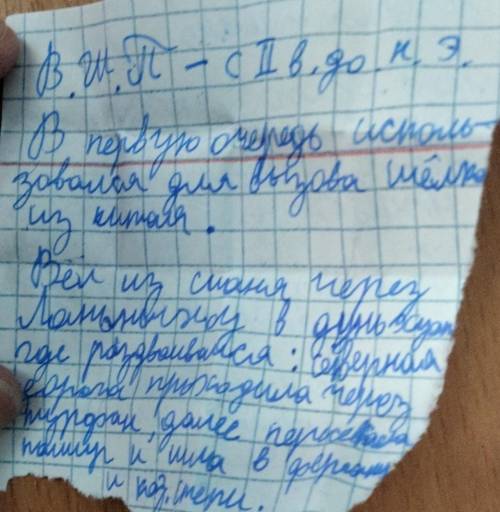 В.Ш.П – с II в. до н. э.
В первую очередь исполь-
зовался для вызова шёлка
из китая.
Вёл из сианя через
Ланьчжоу в дуньхуан
где раздваивался: северная
дорога проходила через
турфан, далее пересекала
памир и шла в фергану
и каз. степи.